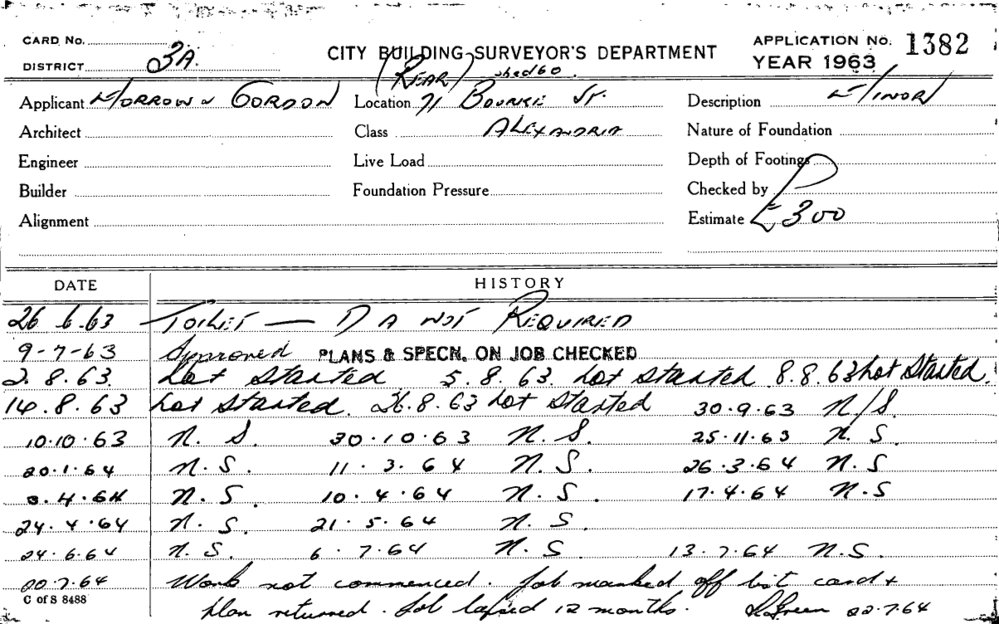 CARD No.
DISTRICT 3A.
CITY BUILDING SURVEYOR'S DEPARTMENT
APPLICATION No. 1382
YEAR 1963
(REAR) shed 60
Applicant MORROW & GORDON Location 71 BOURKE ST. Description MINOR
Architect Class ALEXANDRIA Nature of Foundation
Engineer Live Load Depth of Footings
Builder Foundation Pressure Checked by
Alignment Estimate £300
DATE HISTORY
26.6.63 TOILET — D A NOT REQUIRED
9-7-63 Approved PLANS & SPECN. ON JOB CHECKED
2.8.63 Not Started 5.8.63. Not Started 8.8.63 Not Started.
14.8.63 Not Started. 26.8.63 Not Started 30.9.63 N/S.
10.10.63 N.S. 30.10.63 N.S. 25.11.63 N.S.
20.1.64 N.S. 11.3.64 N.S. 26.3.64 N.S
3.4.64 N.S 10.4.64 N.S. 17.4.64 N.S
24.4.64 N.S. 21.5.64 N.S.
24.6.64 N.S. 6.7.64 N.S. 13.7.64 N.S.
22.7.64 Work not commenced. Job marked off list card +
C of S 8488
plan returned. Job lapsed 12 months. Green 22.7.64